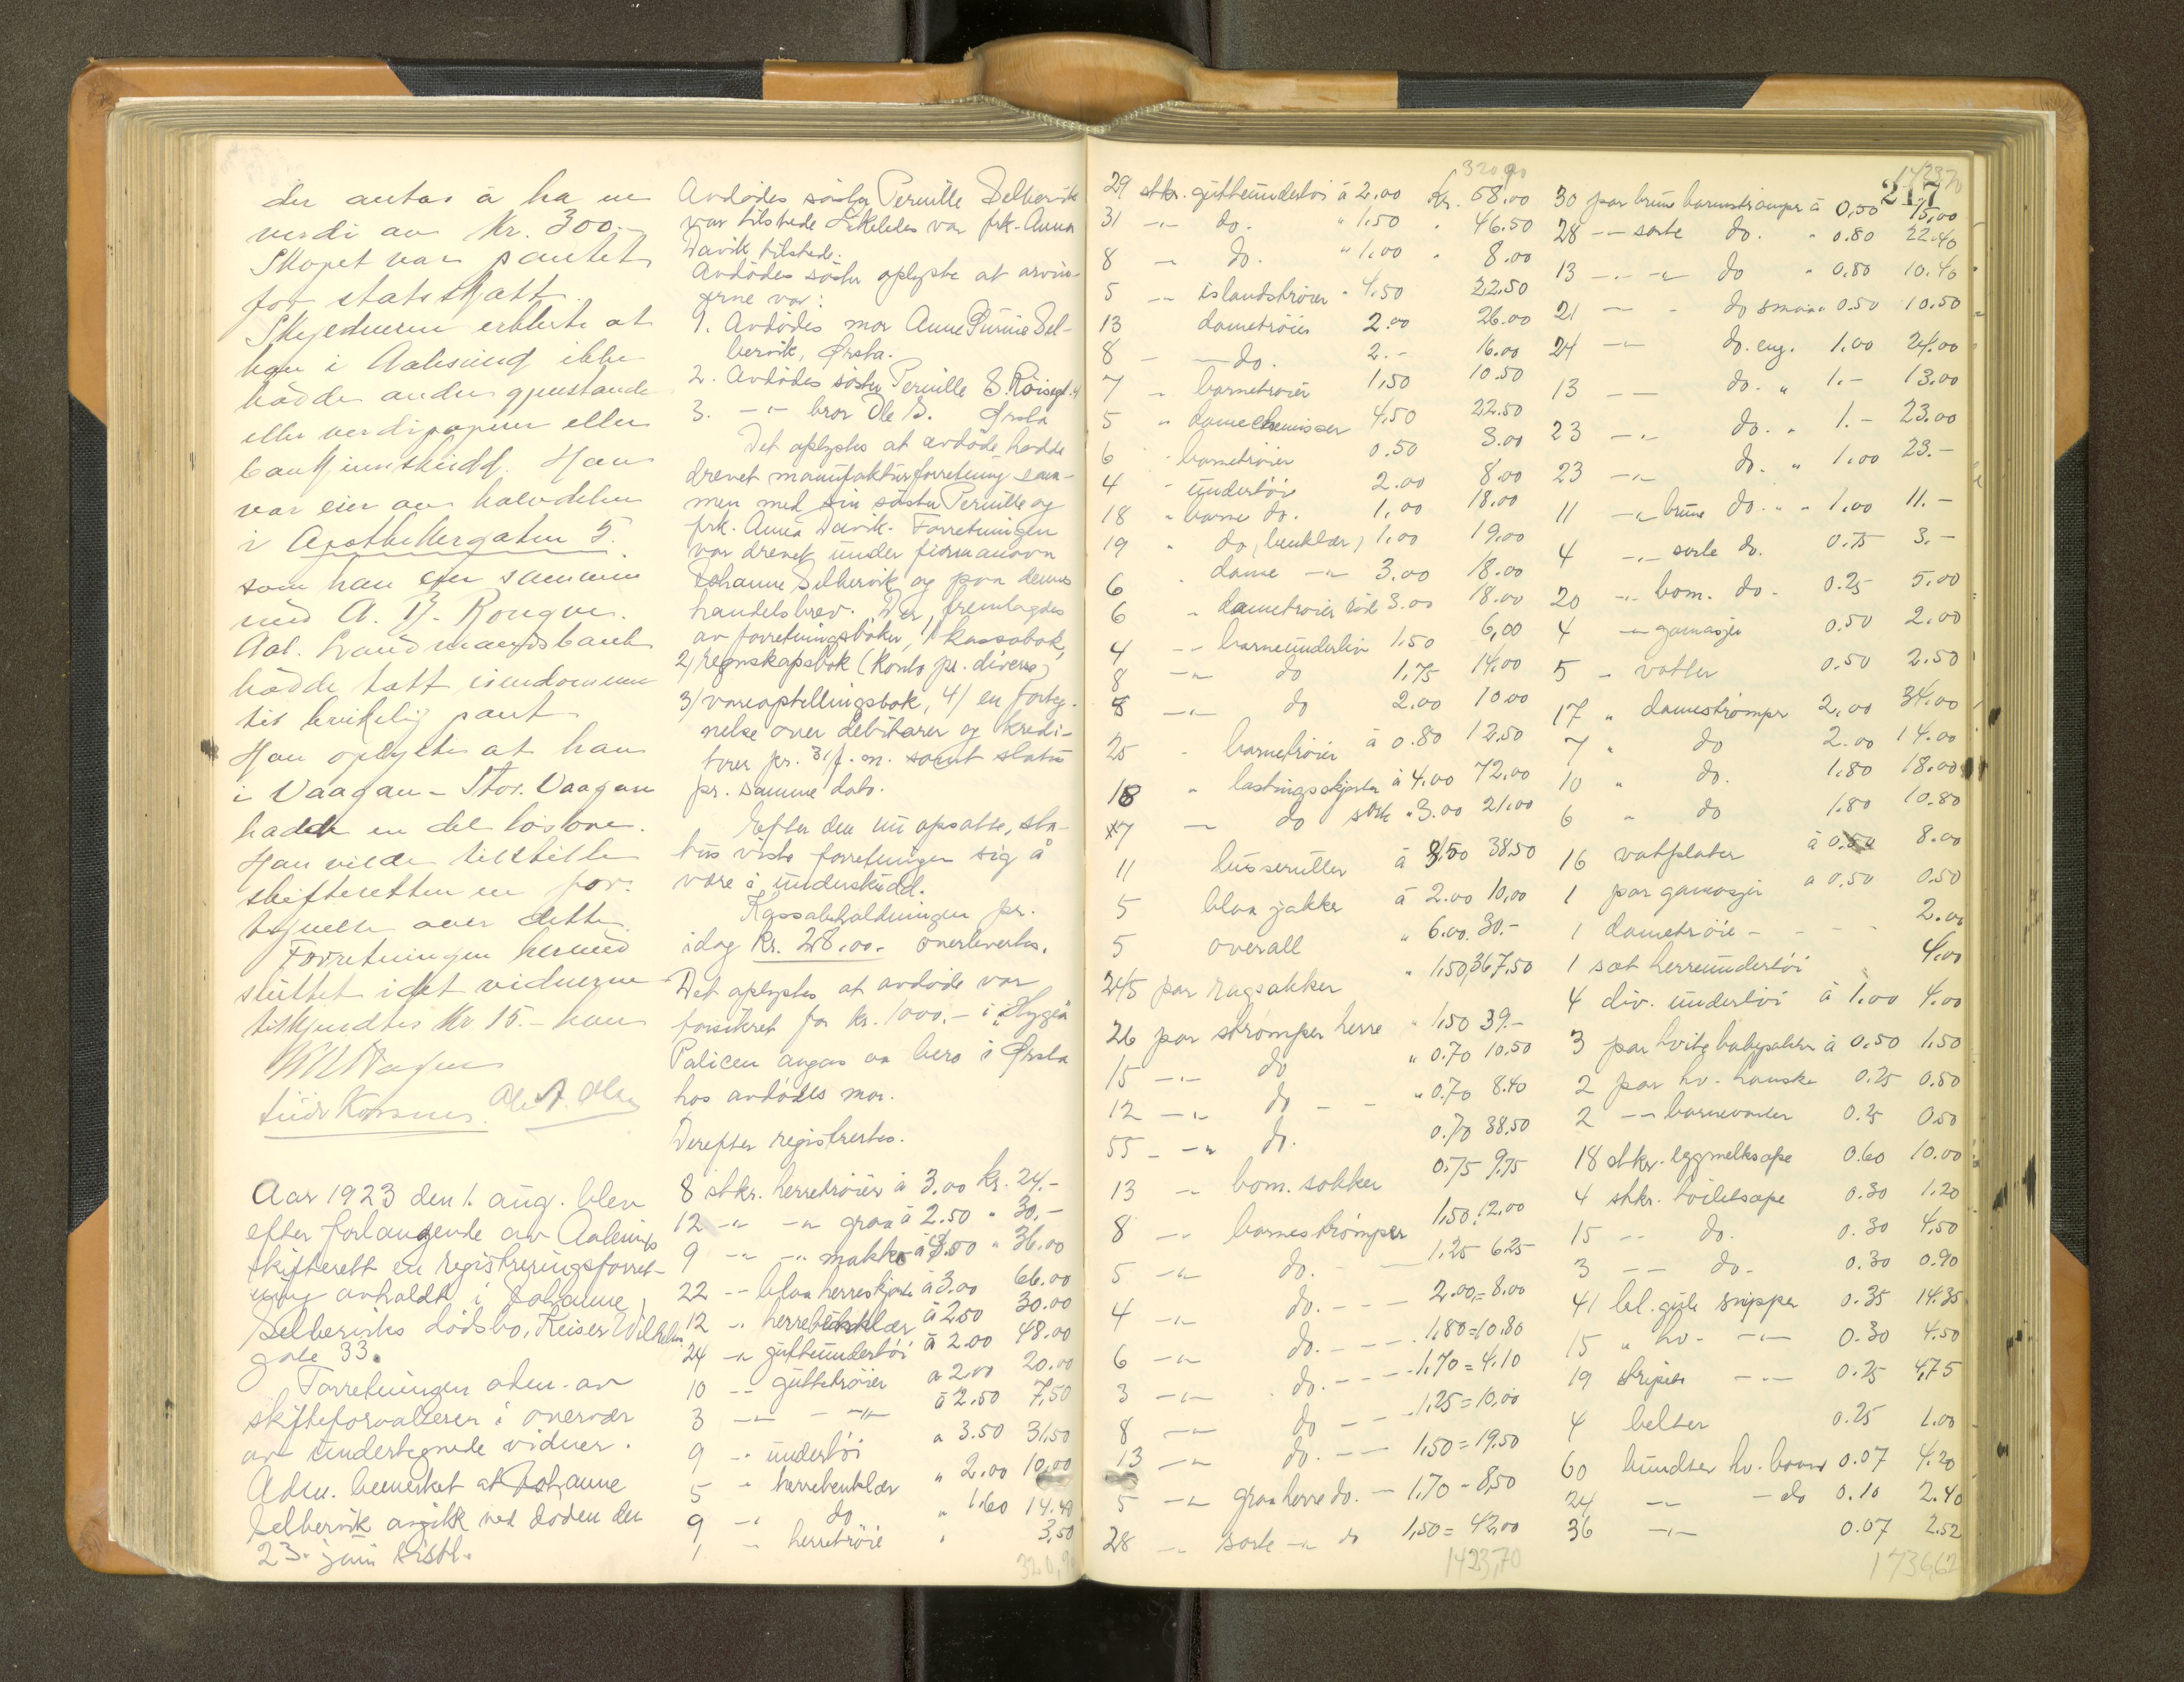 der antas å ha en
verdi av Kr. 300.-
Skapet var pantet
for statsskatt.
Skyldneren erklærte at
han i Aalesund ikke
hadde andre gjenstande
eller verdipapirer eller
bankinnskudd. Han
var eier av halvdelen
i Apothekergaten 5.
som han eier sammen
med A. B. Rongve.
Aal. Landmandsbank
hadde tatt eiendommen
til brukelig pant
Han oplyste at han
i Vaagan - Stor. Vaagan
hadde en del løsøre.
Han vilde tilstille
skifteretten en for-
tegnelse over dette.
Forretningen hermed
sluttet idet vidnerne
tilkjendtes Kr 15.- hver
Aar 1923 den 1. aug. blev
efter forlangende av Aalesunds
skifterett en registreringsforret-
ning avholdt i Johanne
Selberviks dødsbo, Keiser Wilhelms
gate 33.
Forretningen adm. av
skifteforvalteren i overvær
av undertegnede vidner.
Adm. bemerket at Johanne
Selbervik avgikk ved døden den
23. juni sistl.
Avdødes søster Pernille Selbervik
var tilstede Likeledes var frk. Anna
Davik tilstede.
Avdødes søster oplyste at arvin-
gerne var:
1. Avdødes mor Anne Selbervik, Ørsta.
2. Avdødes søster Pernille S.
3. -"- bror Ole S. Ørsta
Det oplystes at avdøde hadde
drevet manufakturforretning sam-
men med sin søster Pernille og
frk. Anna Davik. Forretningen
var drevet under firmanavn
Johanne Selbervik og paa dennes
handelsbrev. Der fremlagdes
av forretningsbøker, 1/ kassabok,
2/ regnskapsbok (konto pr. diverse)
3/ vareoptellingsbok, 4/ en forteg-
nelse over debitorer og kredi-
torer pr. 31/f. m. samt status
pr. samme dato.
Efter den nu opsatte, sta-
tus viste forretningen sig å
være i underskudd.
Kassabeholdningen pr.
idag kr. 28.00.- overleveres.
Det oplystes at avdøde var
forsikret for kr. 1000.- i "Hygea"
Policen angas aa bero i Ørsta
hos avdødes mor.
Derefter registrertes.
8 stkr. herretrøier à 3.00 kr. 24.-
12 -"- -"- graa à 2.50 " 30.-
9 -"- -"- makko à 3.50 " 36.00
22 -"- blaa herreskjorte à 3.00 66.00
12 -"- herrebenklær à 2.50 30.00
24 -"- gutteundertøi à 2.00 48.00
10 -"- guttetrøier à 2.00 20.00
3 -"- -"- à 2.50 7.50
9 -"- undertøi à 3.50 31.50
5 " herrebenklær " 2.00 10.00
9 -"- do " 1.60 14.40
1 " herretrøie " 3.50
320,90
320.90
29 stkr. gutteundertøi à 2.00 Kr. 58.00
31 -"- do. " 1.50 " 46.50
8 -"- do. " 1.00 " 8.00
5 -"- islandstrøier " 4.50 22.50
13 dametrøier 2.00 26.00
8 - -"- do. 2.- 16.00
7 " barnetrøier 1.50 10.50
5 " damechemisser 4.50 22.50
6 " barnetrøier 0.50 3.00
4 " undertøi 2.00 8.00
18 " barne do. 1.00 18.00
19 " do, benklær, 1.00 19.00
6 " dame -"- 3.00 18.00
6 " dametrøier 3.00 18.00
4 -"- barneunderliv 1.50 6,00
8 -"- do 1.75 14.00
5 -"- do 2.00 10.00
25 " barnetrøier à 0.80 12.50
18 " lastingsskjorter à 4.00 72.00
7 -"- do sort " 3.00 21.00
11 busseruller à 3.50 38.50
5 blaa jakker à 2.00 10.00
5 overall " 6.00 30.-
245 par ragsokker " 1.50 367.50
26 par strømper herre " 1.50 39.-
15 -"- do " 0.70 10.50
12 -"- do - - " 0.70 8.40
55 -"- do. 0.70 38.50
13 -"- bom. sokker 0.75 9.75
8 -"- barnestrømper 1.50 12.00
5 -"- do. - 1.25 6.25
4 -"- do. - - - 2.00 = 8.00
6 -"- do. - - - 1.80 = 10.80
3 -"- do. - - - 1.70 = 4.10
8 -"- do - - 1.25 = 10.00
13 -"- do. - - 1.50 = 19.50
5 -"- graa herre do. - 1.70 - 8.50
28 -"- sorte -"- do 1.50 = 42.00
1423,70
1423,70
217
30 par brune barnestrømper à 0.50 15.00
28 -"- sorte do. " 0.80 22.40
13 -"- -"- do " 0.80 10.40
21 -"- " do smaa 0.50 10.50
24 -"- do. eng. 1.00 24.00
13 -"- do. " 1.- 13.00
23 -"- do. " 1.- 23.00
23 -"- do. " 1.00 23.-
11 -"- brune do. " " 1.00 11.-
4 -"- sorte do. 0.75 3.-
20 -"- bom. do. 0.25 5.00
4 -"- gamasjer 0.50 2.00
5 " votter 0.50 2.50
17 " damestrømper 2.00 34.00
7 " do 2.00 14.00
10 " do. 1.80 18.00
6 " do 1.80 10.80
16 vatplater à 0.50 8.00
1 par gamasjer à 0.50 0.50
1 dametrøie - - - - 2.00
1 sæt herreundertøi 4.00
4 div. undertøi à 1.00 4.00
3 par hvite babysokker à 0.50 1.50
2 par hv. hansker 0.25 0.50
2 -"- barnevanter 0.25 0.50
18 stkr. eggmelksåpe 0.60 10.00
4 stkr. toiletsape 0.30 1.20
15 -"- do. 0.30 4.50
3 -"- do. 0.30 0.90
41 bl. gule snipper 0.35 14.35
15 " hv. -"- 0.30 4.50
19 stripete -"- 0.25 4.75
4 belter 0.25 1.00
60 bundter hv. baand 0.07 4.20
24 -"- - do 0.10 2.40
36 -"- 0.07 2.52
1736,62